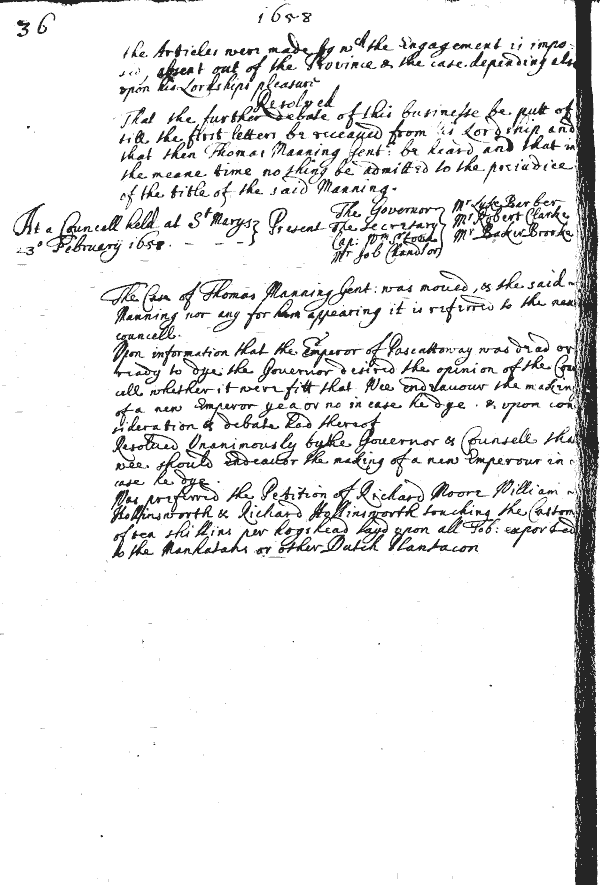 36
1658
the Articles were made by wch the Engagement is impo-
sed, absent out of the Province & the case depending also
upon his Lordships pleasure
Resolved
That the further debate of this businesse be putt of
till the first letters be receaued from his Lordship and
that then Thomas Manning Gent: be heard and that in
the meane time nothing be admitted to the prejudice
of the title of the said Manning.
At a Councell held at St Marys } Present The Governor } Mr Luke Barber
3o February 1658. The Secretary Mr Robert Clarke
Cap: Wm Stone Mr Baker Brooke
Mr Job Chandlor
The Case of Thomas Manning Gent: was moued, & the said
Manning nor any for him appearing it is referred to the next
councell.
Upon information that the Emperor of Pascattoway was dead or
ready to dye the Governor desired the opinion of the Coun
cell whether it were fitt that Wee endeavour the making
of a new Emperor yea or no in case he dye. & upon con
sideration & debate had thereof
Resolued Unanimously by the Governor & Counsell that
wee should endeavor the making of a new Emperour in
case he dye.
Was preferred the Petition of Richard Moore William
Hollinsworth & Richard Hollinsworth touching the Custom
of ten shillins per hogshead layd upon all Tob: exported
to the Manhatans or other Dutch Plantacon